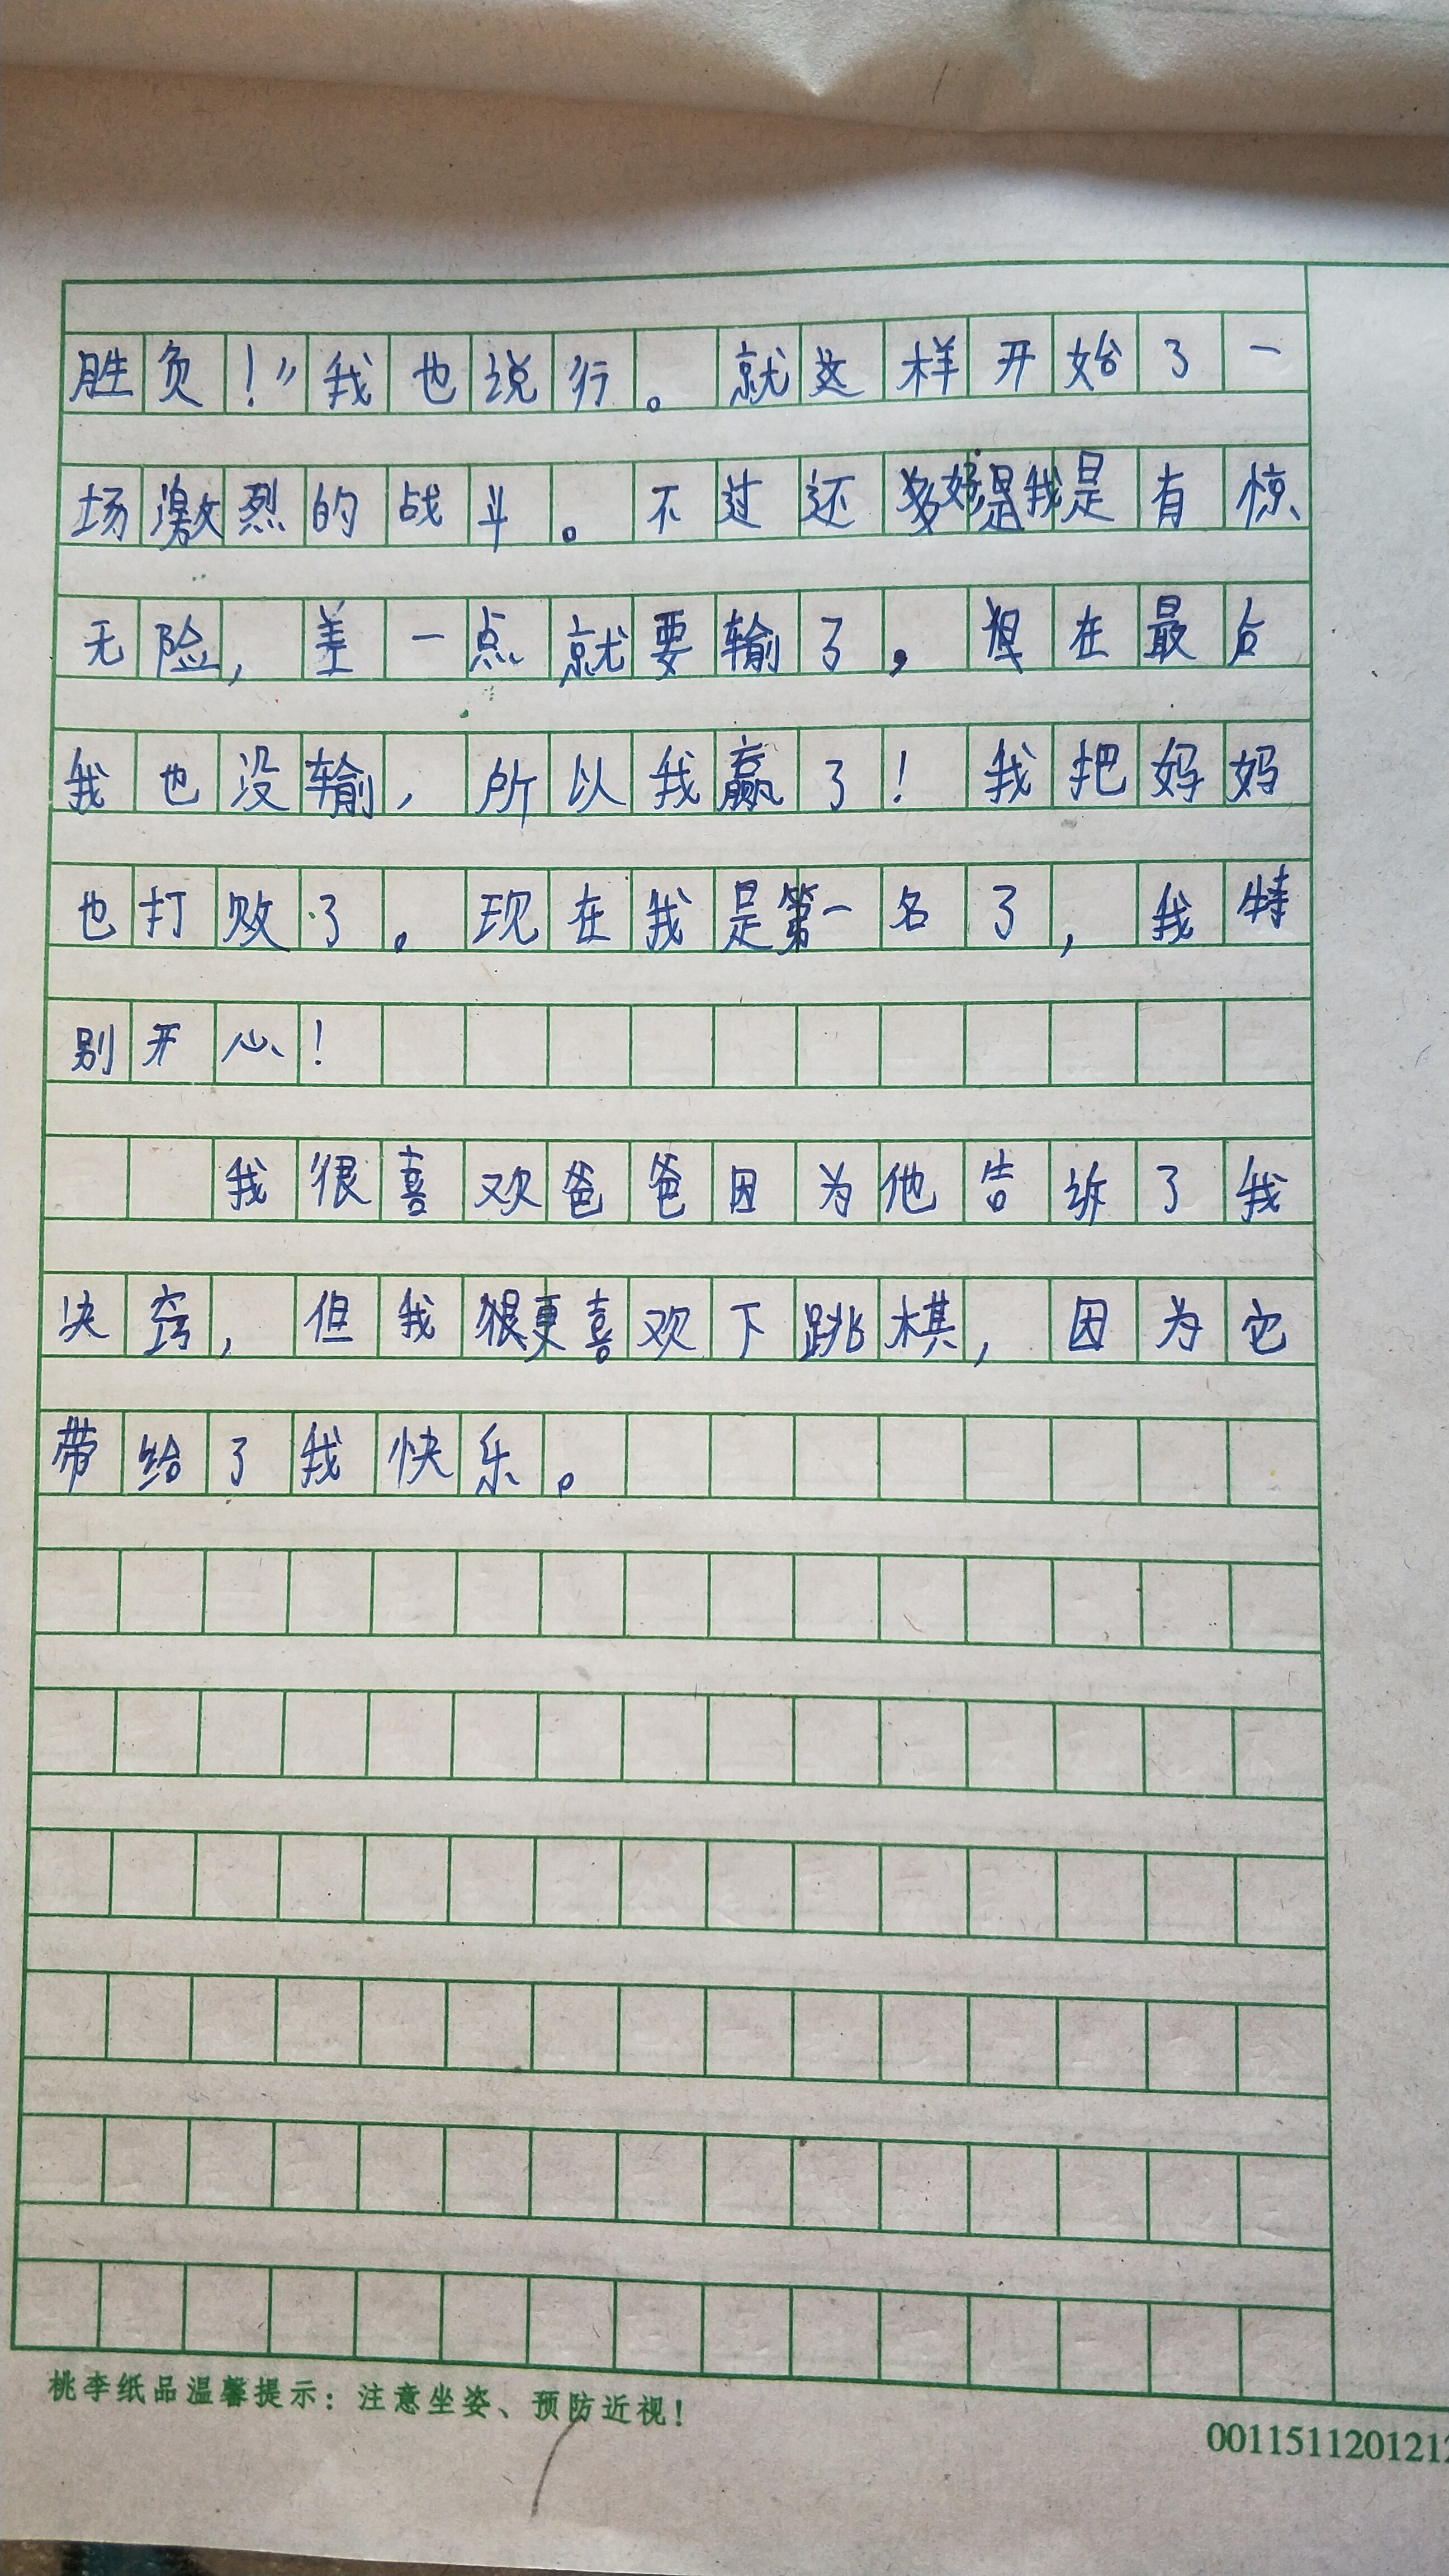 胜负！”我也说行。就这样开始了一
场激烈的战斗。不过还好是我是有惊
无险，差一点就要输了，但在最后
我也没输，所以我赢了！我把妈妈
也打败了。现在我是第一名了，我特
别开心！
我很喜欢爸爸因为他告诉了我
决窍，但我很更喜欢下跳棋，因为它
带给了我快乐。
桃李纸品温馨提示：注意坐姿、预防近视！
001151120121